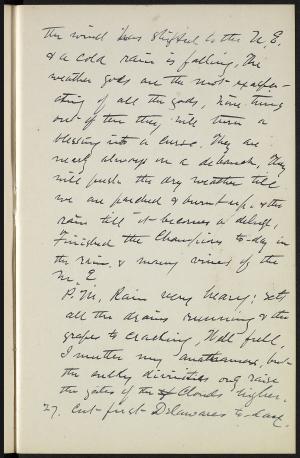 the wind has shifted to the N.E.
& a cold rain is falling. The
weather gods are the most exasper-
ating of all the gods, nine times
out of ten they will turn a
blessing into a curse. They are
nearly always on a debauch. They
will push the dry weather till
we are parched & burnt up, & the
rain till it becomes a deluge.
Finished the Champions to-day in
the rain & many vines of the
M. E.
P.M. Rain very heavy; sets
all the drains running & the
grapes to cracking, Well full,
I mutter my anathemas, but
the sulky divinities only raise
the gates of the clouds higher.
27. Cut first Delawares to-day.